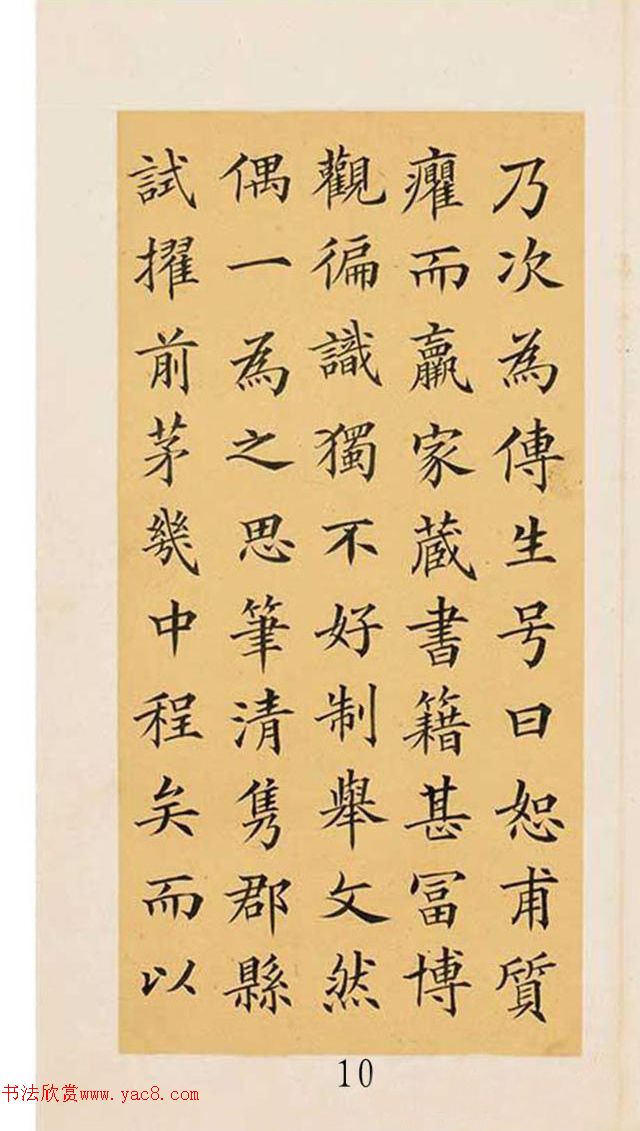 乃次為傳生号曰恕甫質
癯而羸家蔵書籍甚冨博
觀徧識獨不好制舉文然
偶一為之思筆清隽郡縣
試擢前茅幾中程矣而以
10
书法欣赏www.yac8.com